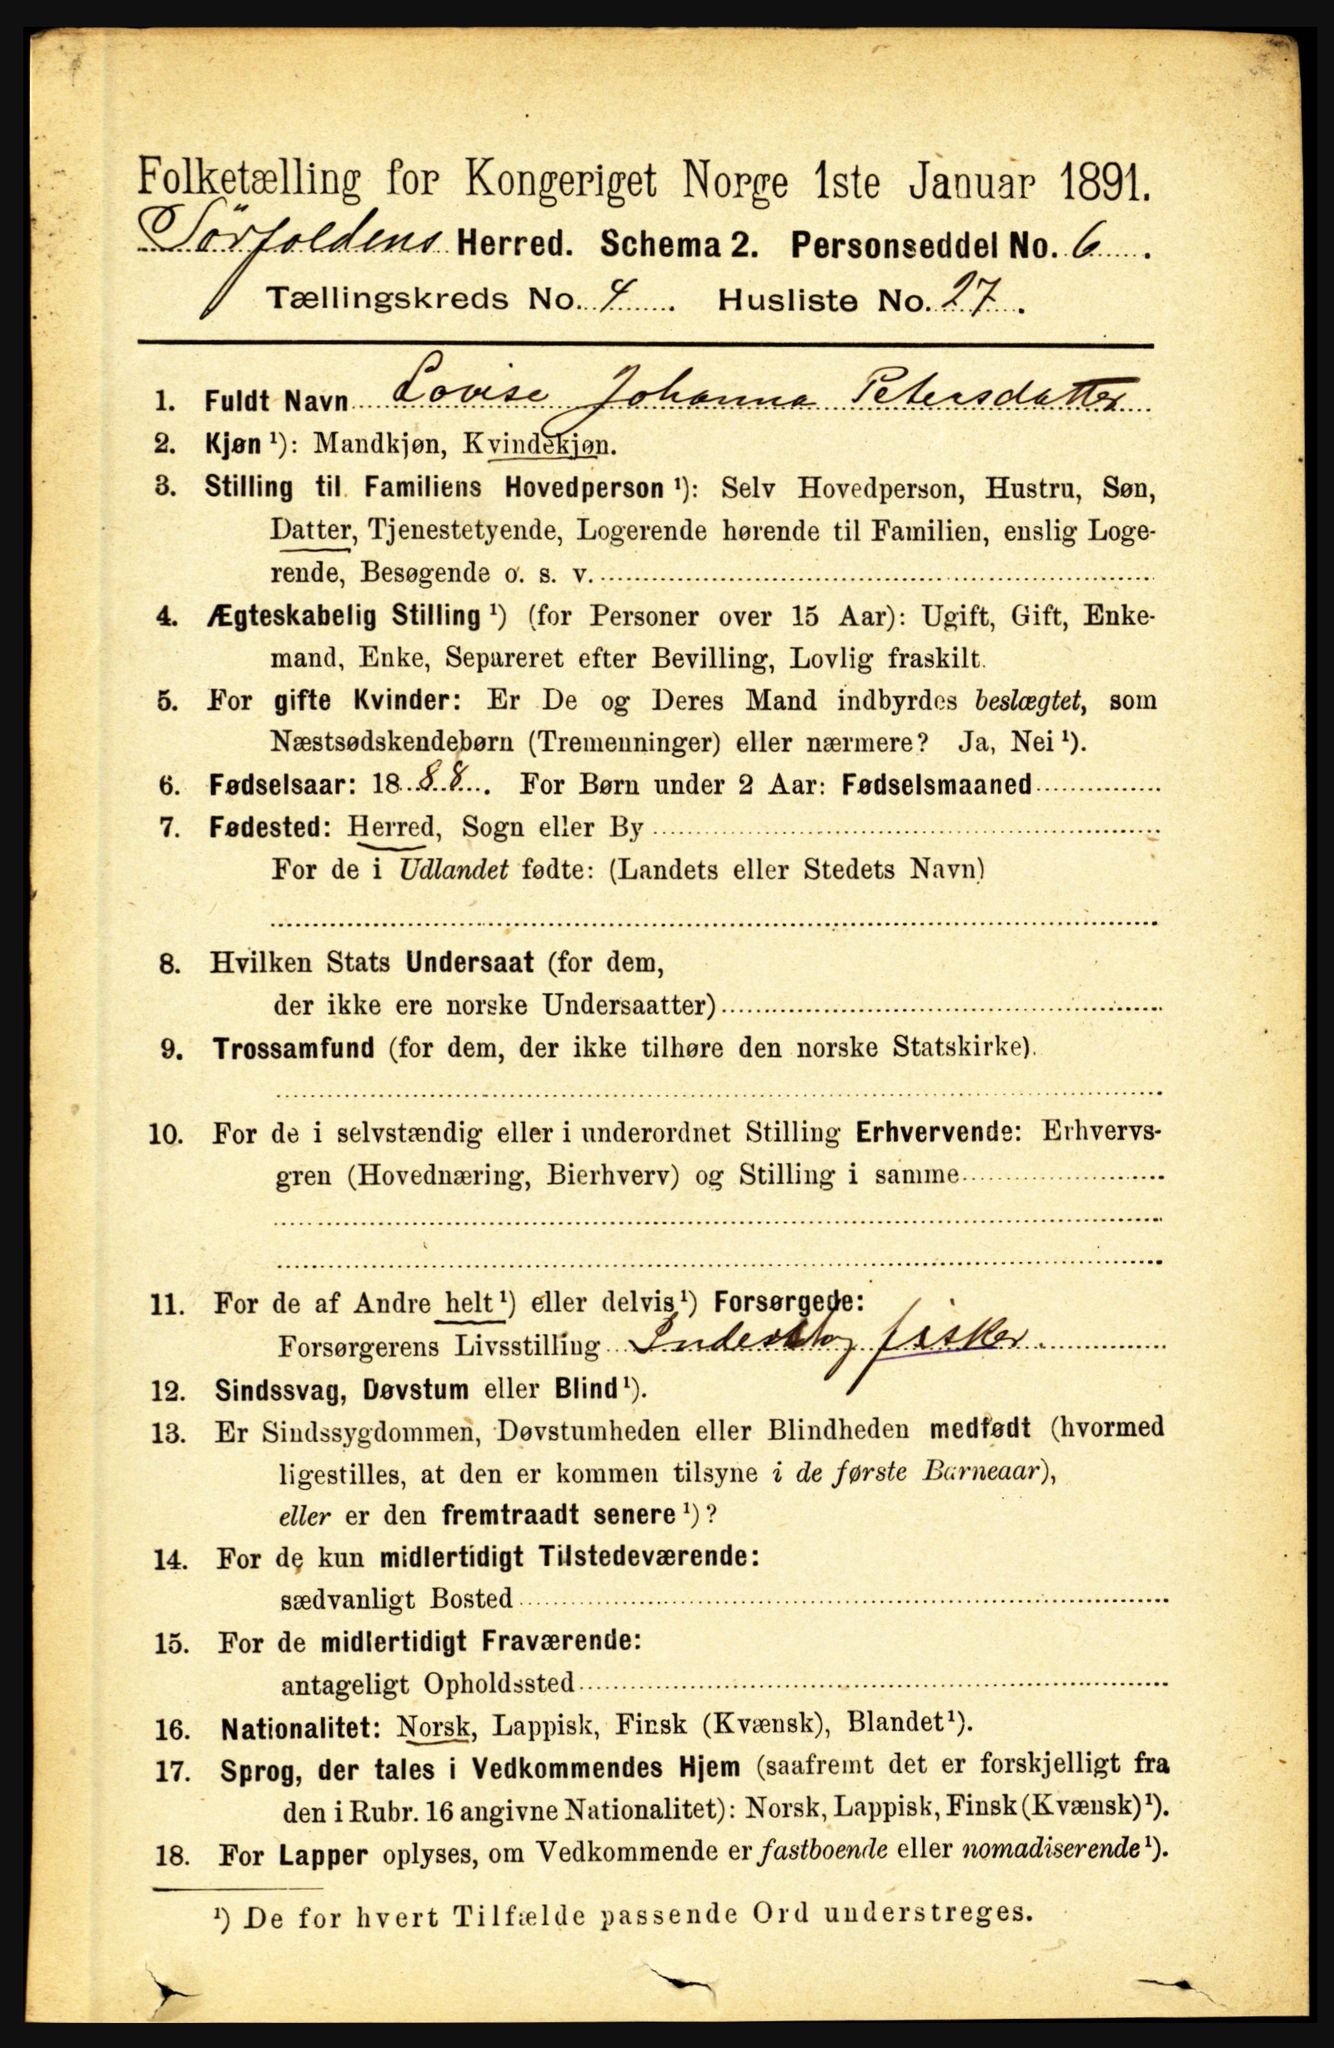 Folketælling for Kongeriget Norge 1ste Januar 1891.
Sörfoldens Herred. Schema 2. Personseddel No. 6.
Tællingskreds No. 4. Husliste No. 27.
1. Fuldt Navn Lovise Johanna Petersdatter
2. Kjøn ¹): Mandkjøn, Kvindekjøn.
3. Stilling til Familiens Hovedperson ¹): Selv Hovedperson, Hustru, Søn,
Datter, Tjenestetyende, Logerende hørende til Familien, enslig Loge-
rende, Besøgende o. s. v.
4. Ægteskabelig Stilling ¹) (for Personer over 15 Aar): Ugift, Gift, Enke-
mand, Enke, Separeret efter Bevilling, Lovlig fraskilt.
5. For gifte Kvinder: Er De og Deres Mand indbyrdes beslægtet, som
Næstsødskendebørn (Tremenninger) eller nærmere? Ja, Nei ¹).
6. Fødselsaar: 1888. For Børn under 2 Aar: Fødselsmaaned
7. Fødested: Herred, Sogn eller By
For de i Udlandet fødte: (Landets eller Stedets Navn)
8. Hvilken Stats Undersaat (for dem,
der ikke ere norske Undersaatter)
9. Trossamfund (for dem, der ikke tilhøre den norske Statskirke).
10. For de i selvstændig eller i underordnet Stilling Erhvervende: Erhvervs-
gren (Hovednæring, Bierhverv) og Stilling i samme
11. For de af Andre helt ¹) eller delvis ¹) Forsørgede:
Forsørgerens Livsstilling og fisker.
12. Sindssvag, Døvstum eller Blind ¹).
13. Er Sindssygdommen, Døvstumheden eller Blindheden medfødt (hvormed
ligestilles, at den er kommen tilsyne i de første Barneaar),
eller er den fremtraadt senere ¹)?
14. For de kun midlertidigt Tilstedeværende:
sædvanligt Bosted
15. For de midlertidigt Fraværende:
antageligt Opholdssted
16. Nationalitet: Norsk, Lappisk, Finsk (Kvænsk), Blandet ¹).
17. Sprog, der tales i Vedkommendes Hjem (saafremt det er forskjelligt fra
den i Rubr. 16 angivne Nationalitet): Norsk, Lappisk, Finsk (Kvænsk) ¹).
18. For Lapper oplyses, om Vedkommende er fastboende eller nomadiserende ¹).
¹) De for hvert Tilfælde passende Ord understreges.